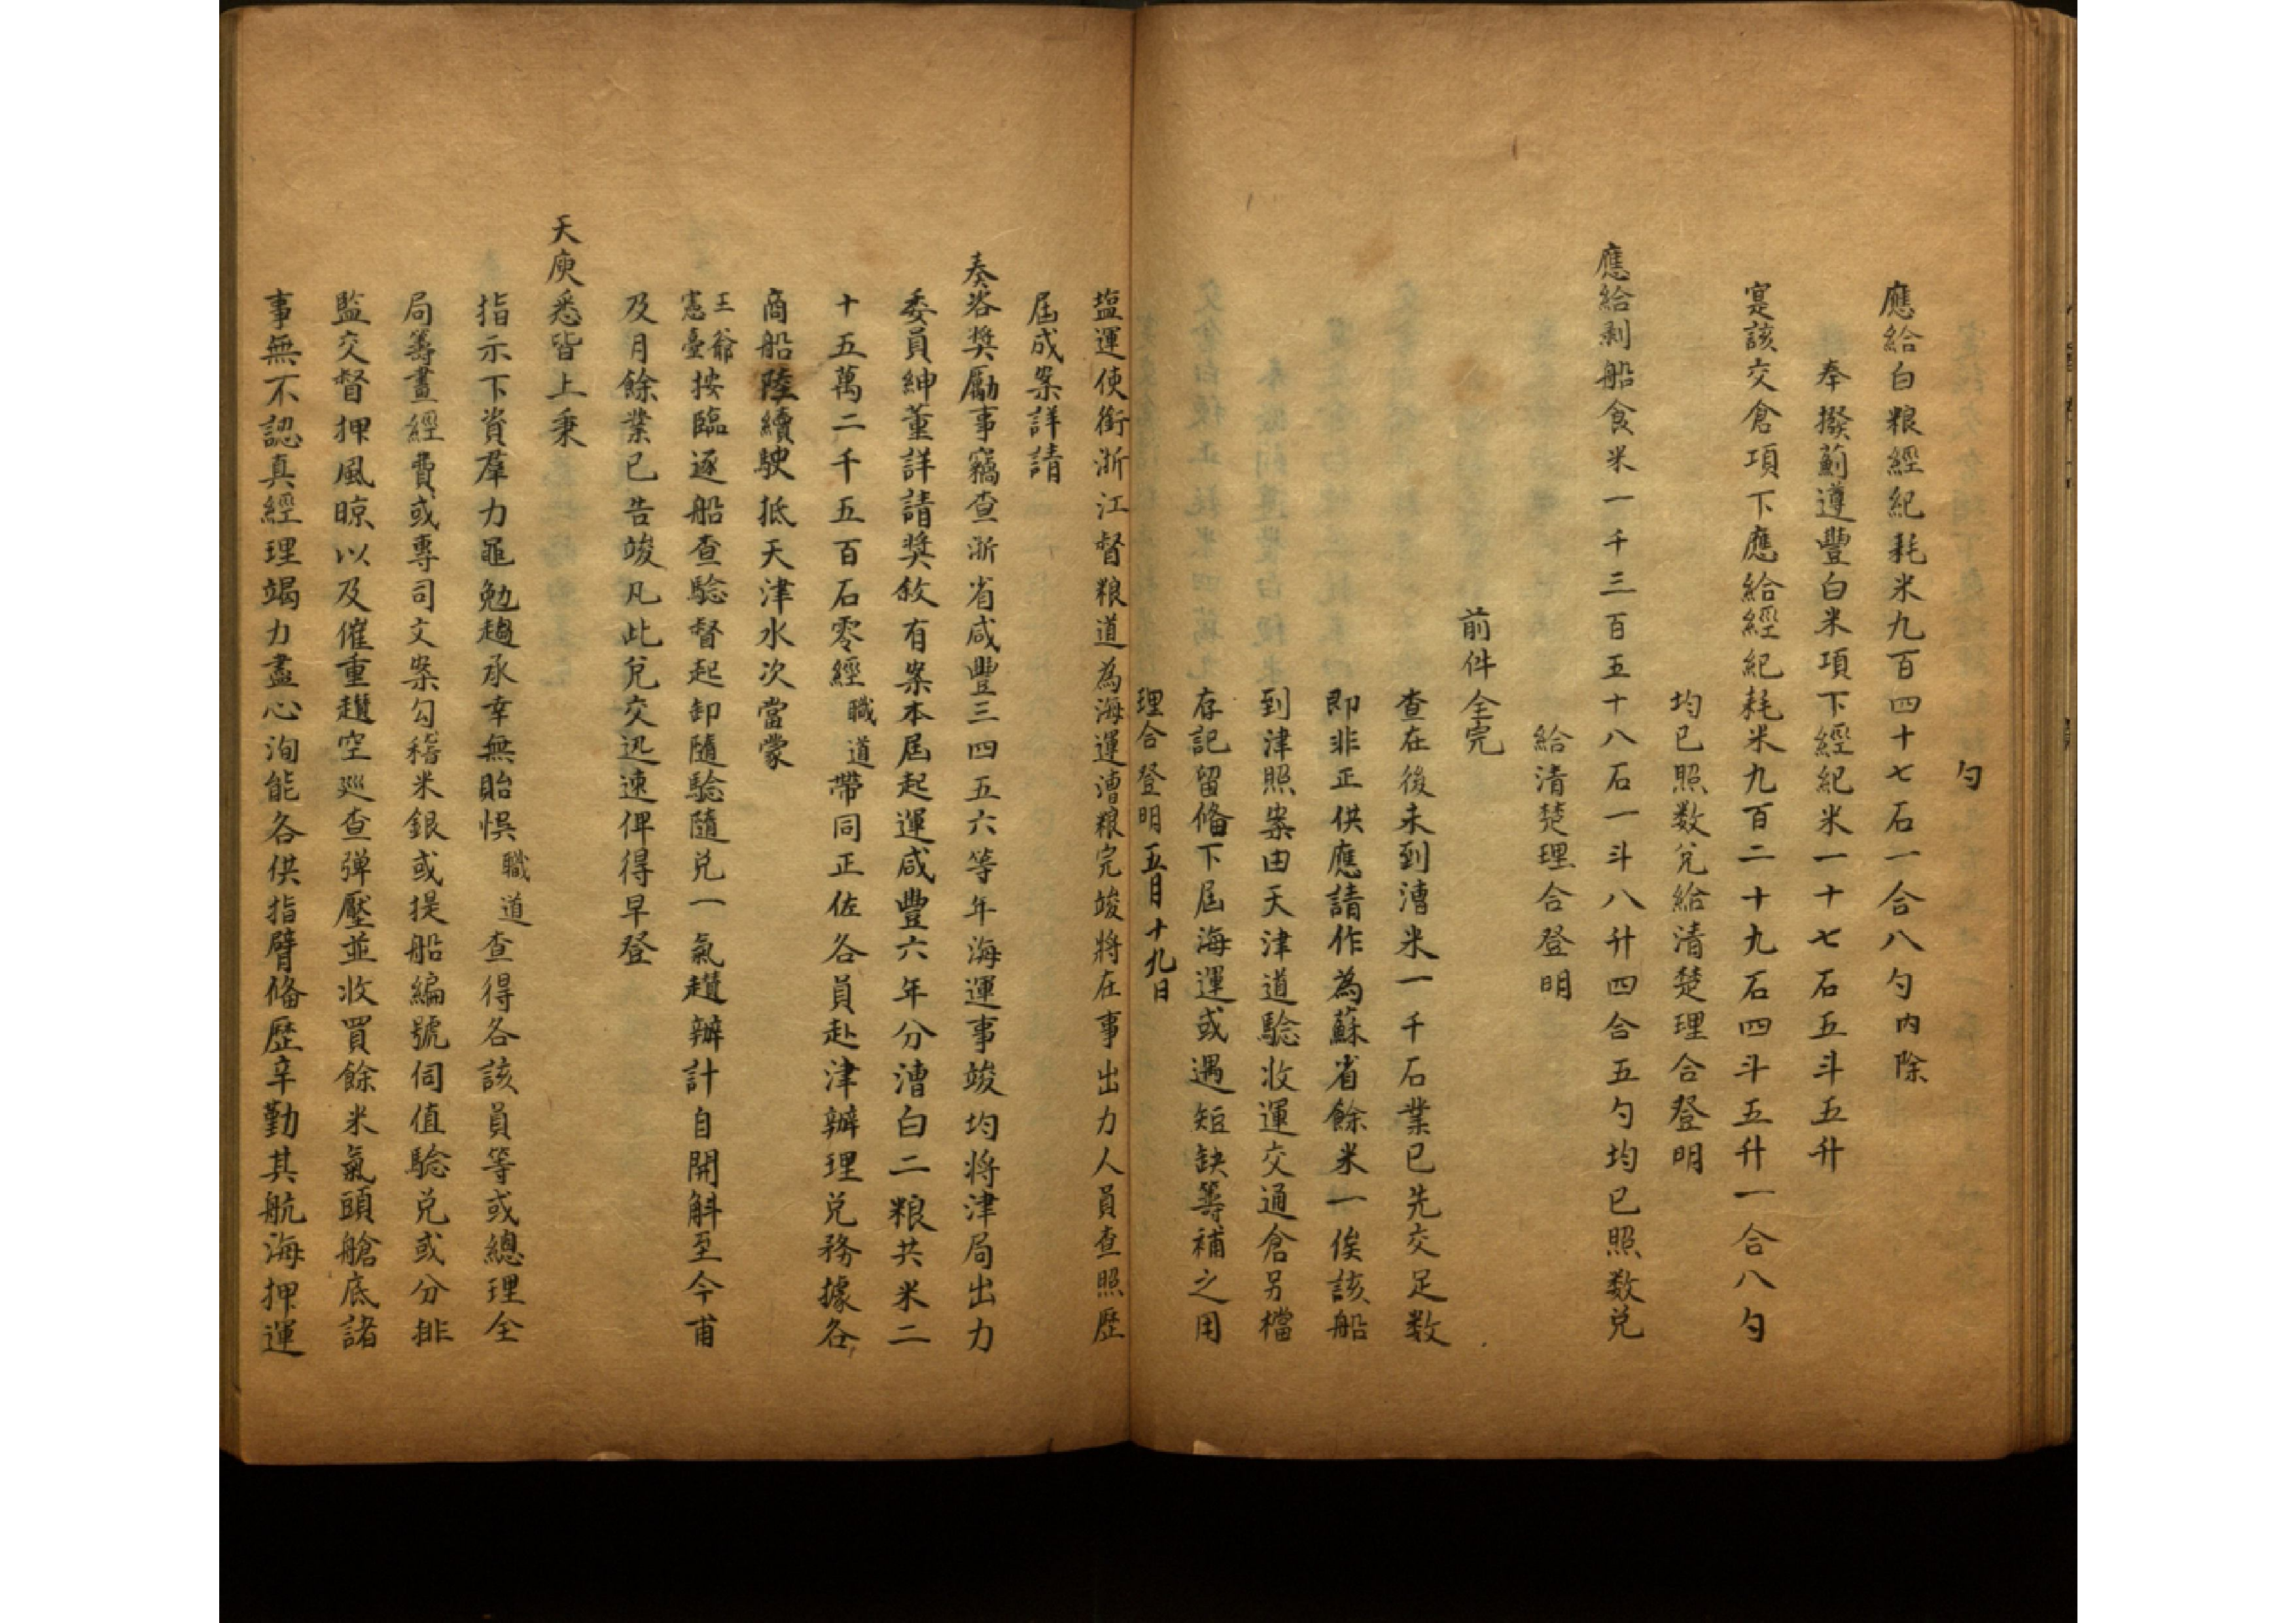 勺
應給白粮經紀耗米九百四十七石一合八勺內除
奉撥薊遵豐白米項下經紀米一十七石五斗五升
寔該交倉項下應給經紀耗米九百二十九石四斗五升一合八勺
均已照数兌給清楚理合登明
應給剥船食米一千三百五十八石一斗八升四合五勺均已照数兌
給清楚理合登明
前件全完
查在後未到漕米一千石業已先交足数
即非正供應請作為蘇省餘米一俟該船
到津照案由天津道驗收運交通倉另檔
存記留俻下屆海運或遇短缺等補之用
理合登明五月十九日
塩運使銜浙江督粮道為海運漕粮完竣將在事出力人員查照歷
屆成案詳請
奏咨奬勵事竊查浙省咸豐三四五六等年海運事竣均將津局出力
委員紳董詳請奬敘有案本屆起運咸豐六年分漕白二粮共米二
十五萬二千五百石零經職道帶同正佐各員赴津辦理兌務據各
商船陸續駛抵天津水次當蒙
王爺憲臺按臨逐船查驗督起卸隨驗隨兌一氣趲辦計自開斛至今甫
及月餘業已告竣凡此兌交迅速俾得早登
天庾悉皆上秉
指示下資羣力黽勉趨承幸無貽悞職道查得各該員等或總理全
局籌畫經費或專司文案勾稽米銀或提船編號伺值驗兌或分排
監交督押風晾以及催重趲空廵查彈壓並收買餘米氣頭艙底諸
事無不認真經理竭力盡心洵能各供指臂俻歷辛勤其航海押運